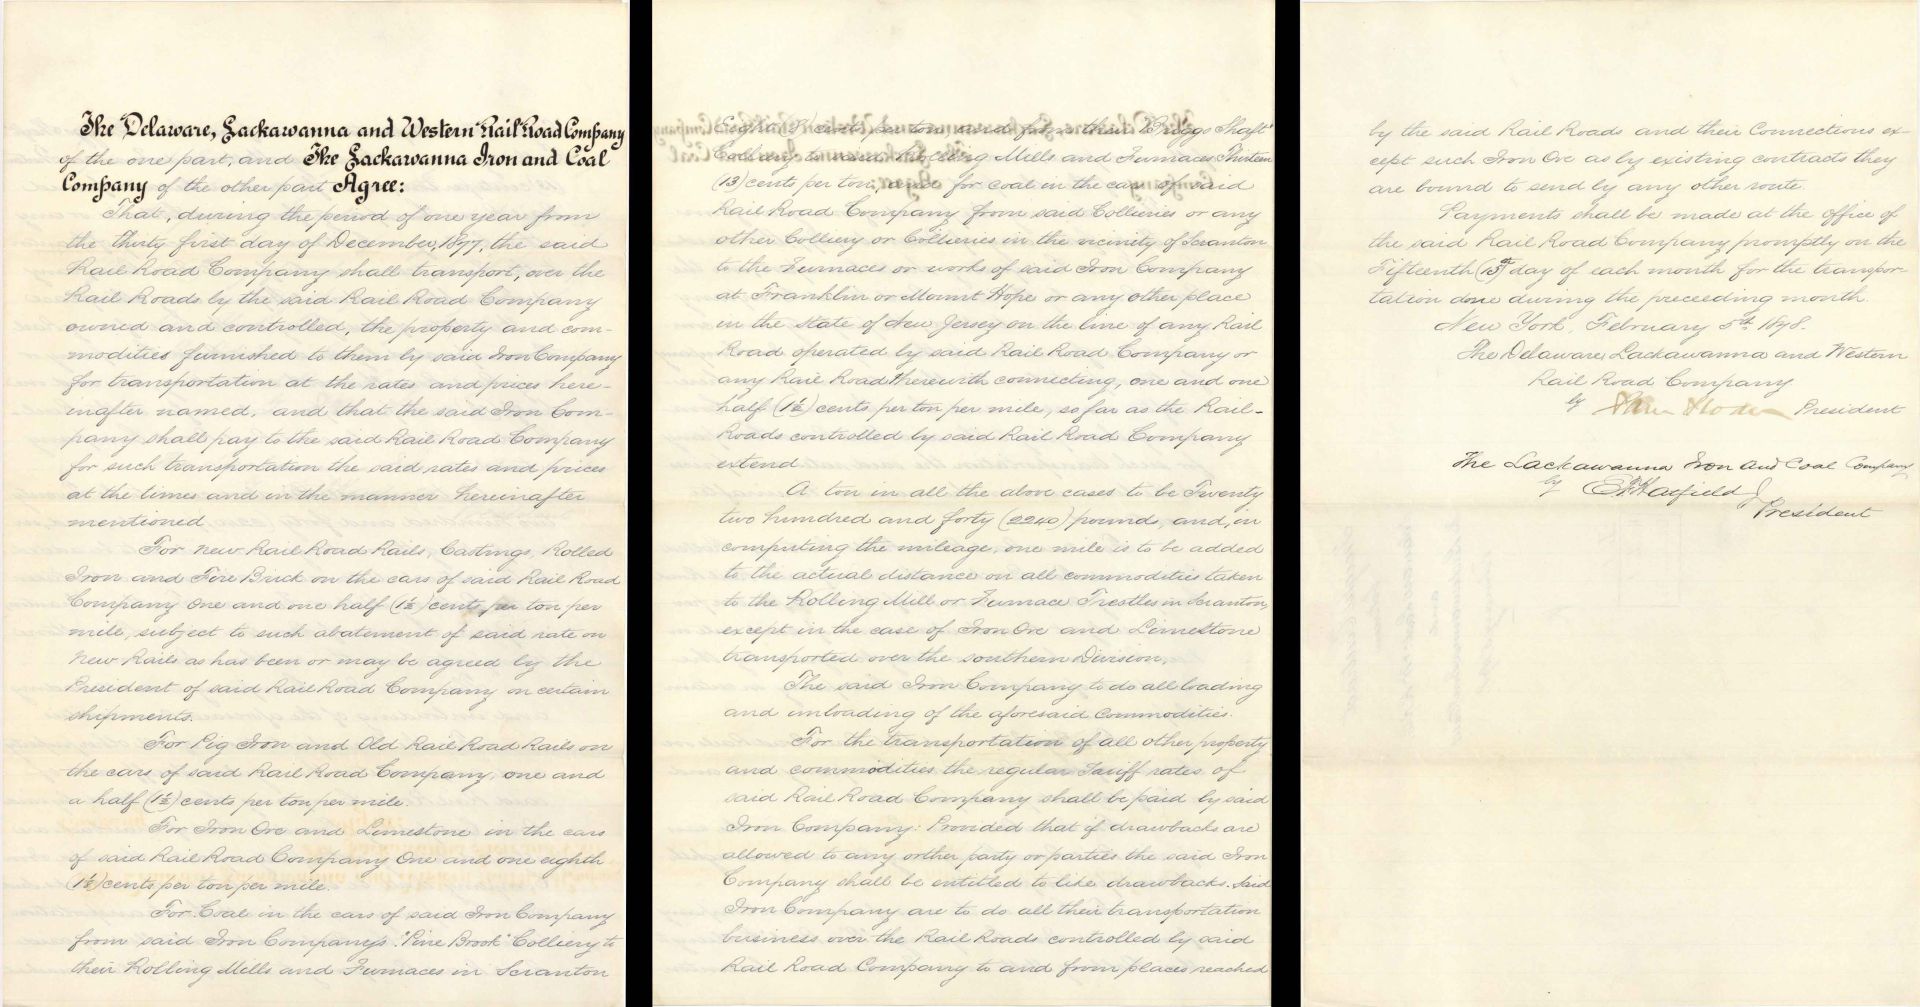 The Delaware, Lackawanna and Western Rail Road Company
of the one part, and The Lackawanna Iron and Coal
Company of the other part Agree:
That, during the period of one year from
the thirty first day of December, 1877, the said
Rail Road Company shall transport, over the
Rail Roads by the said Rail Road Company
owned and controlled, the property and com-
modities furnished to them by said Iron Company
for transportation at the rates and prices here-
inafter named, and that the said Iron Com-
pany shall pay to the said Rail Road Company
for such transportation the said rates and prices
at the times and in the manner hereinafter
mentioned.
For new Rail Road Rails, Castings, Rolled
Iron and Fire Brick on the cars of said Rail Road
Company One and one half (1½) cents per ton per
mile, subject to such abatement of said rate on
new Rails as has been or may be agreed by the
President of said Rail Road Company on certain
shipments.
For Pig Iron and Old Rail Road Rails on
the cars of said Rail Road Company, one and
a half (1½) cents per ton per mile.
For Iron Ore and Limestone in the cars
of said Rail Road Company One and one eighth
(1⅛) cents per ton per mile.
For Coal in the cars of said Iron Company
from said Iron Company's "Pine Brook" Colliery to
their Rolling Mills and Furnaces in Scranton
Eight (8) cents per ton and from their "Briggs Shaft"
Colliery to said Rolling Mills and Furnaces Thirteen
(13) cents per ton, and for coal in the cars of said
Rail Road Company from said Collieries or any
other Colliery or Collieries in the vicinity of Scranton
to the Furnaces or works of said Iron Company
at Franklin or Mount Hope or any other place
in the State of New Jersey on the line of any Rail
Road operated by said Rail Road Company or
any Rail Road therewith connecting, one and one
half (1½) cents per ton per mile, so far as the Rail-
Roads controlled by said Rail Road Company
extend.
A ton in all the above cases to be Twenty
two hundred and forty (2240) pounds, and, in
computing the mileage, one mile is to be added
to the actual distance on all commodities taken
to the Rolling Mill or Furnace Trestles in Scranton,
except in the case of Iron Ore and Limestone
transported over the southern Division.
The said Iron Company to do all loading
and unloading of the aforesaid commodities.
For the transportation of all other property
and commodities the regular Tariff rates of
said Rail Road Company shall be paid by said
Iron Company: Provided that if drawbacks are
allowed to any orther party or parties the said Iron
Company shall be entitled to like drawbacks. Said
Iron Company are to do all their transportation
business over the Rail Roads controlled by said
Rail Road Company to and from places reached
by the said Rail Roads and their Connections ex-
cept such Iron Ore as by existing contracts they
are bound to send by any other route.
Payments shall be made at the office of
the said Rail Road Company promptly on the
Fifteenth (15th) day of each month for the transpor-
tation done during the preceeding month.
New York, February 5th 1878.
The Delaware, Lackawanna and Western
Rail Road Company
by Sam Sloan President
The Lackawanna Iron and Coal Company
by E F Hatfield Jr
President